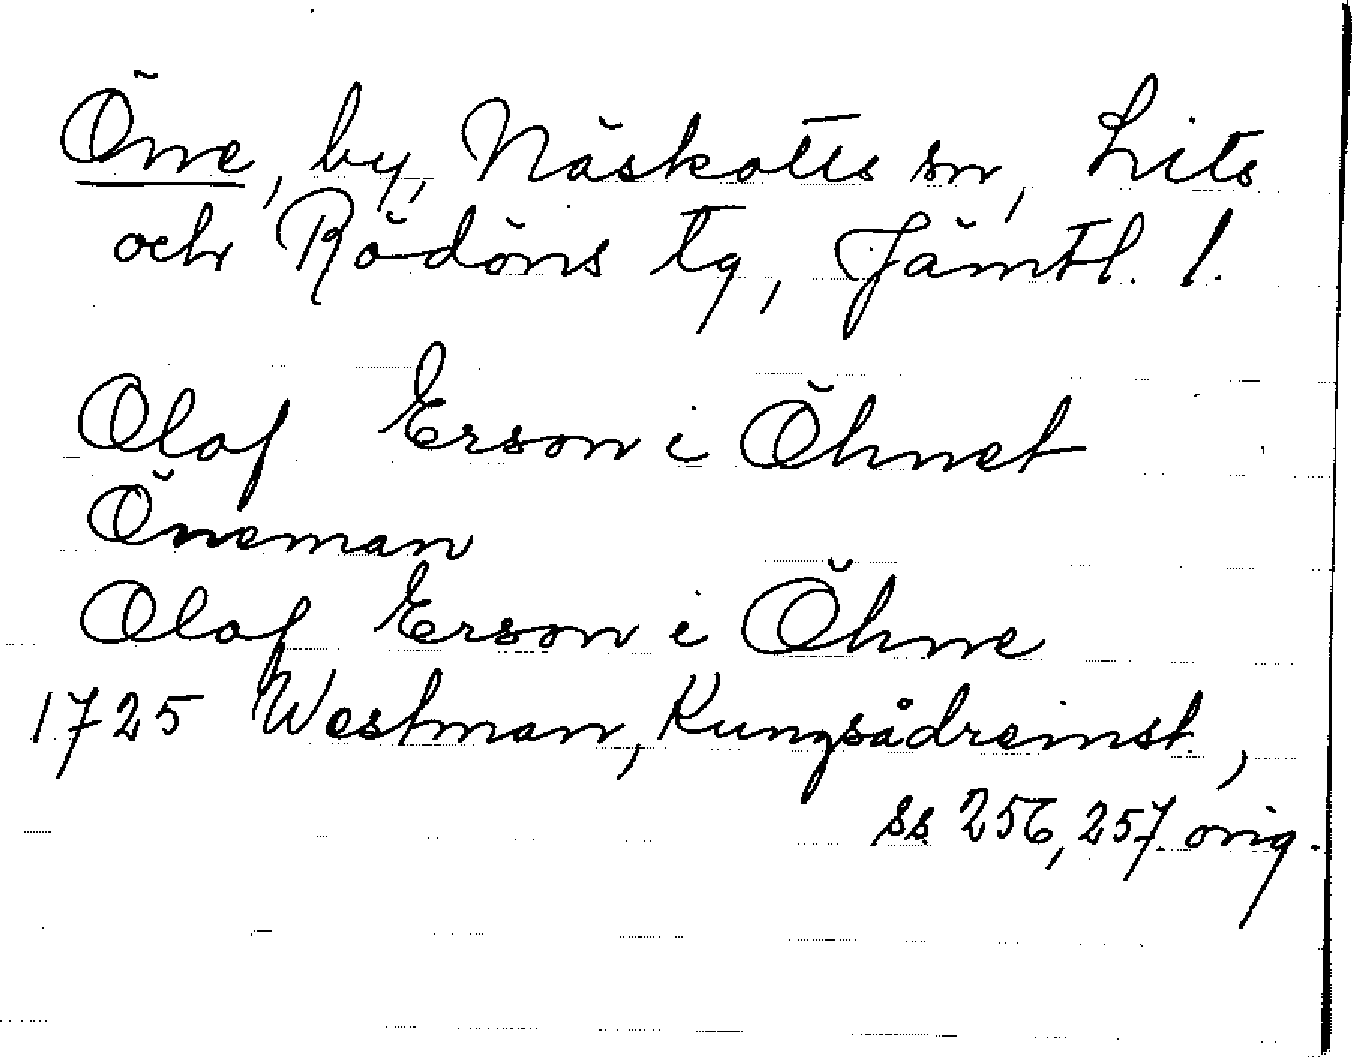 Öne, by, Näskotts sn, Lits
och Rödöns tg, Jämtl. l.
Olof Erson i Öhnet
Öneman
Olof Erson i Öhne
1725 Westman, Kungsådreinst.,
ss 256, 257 orig.